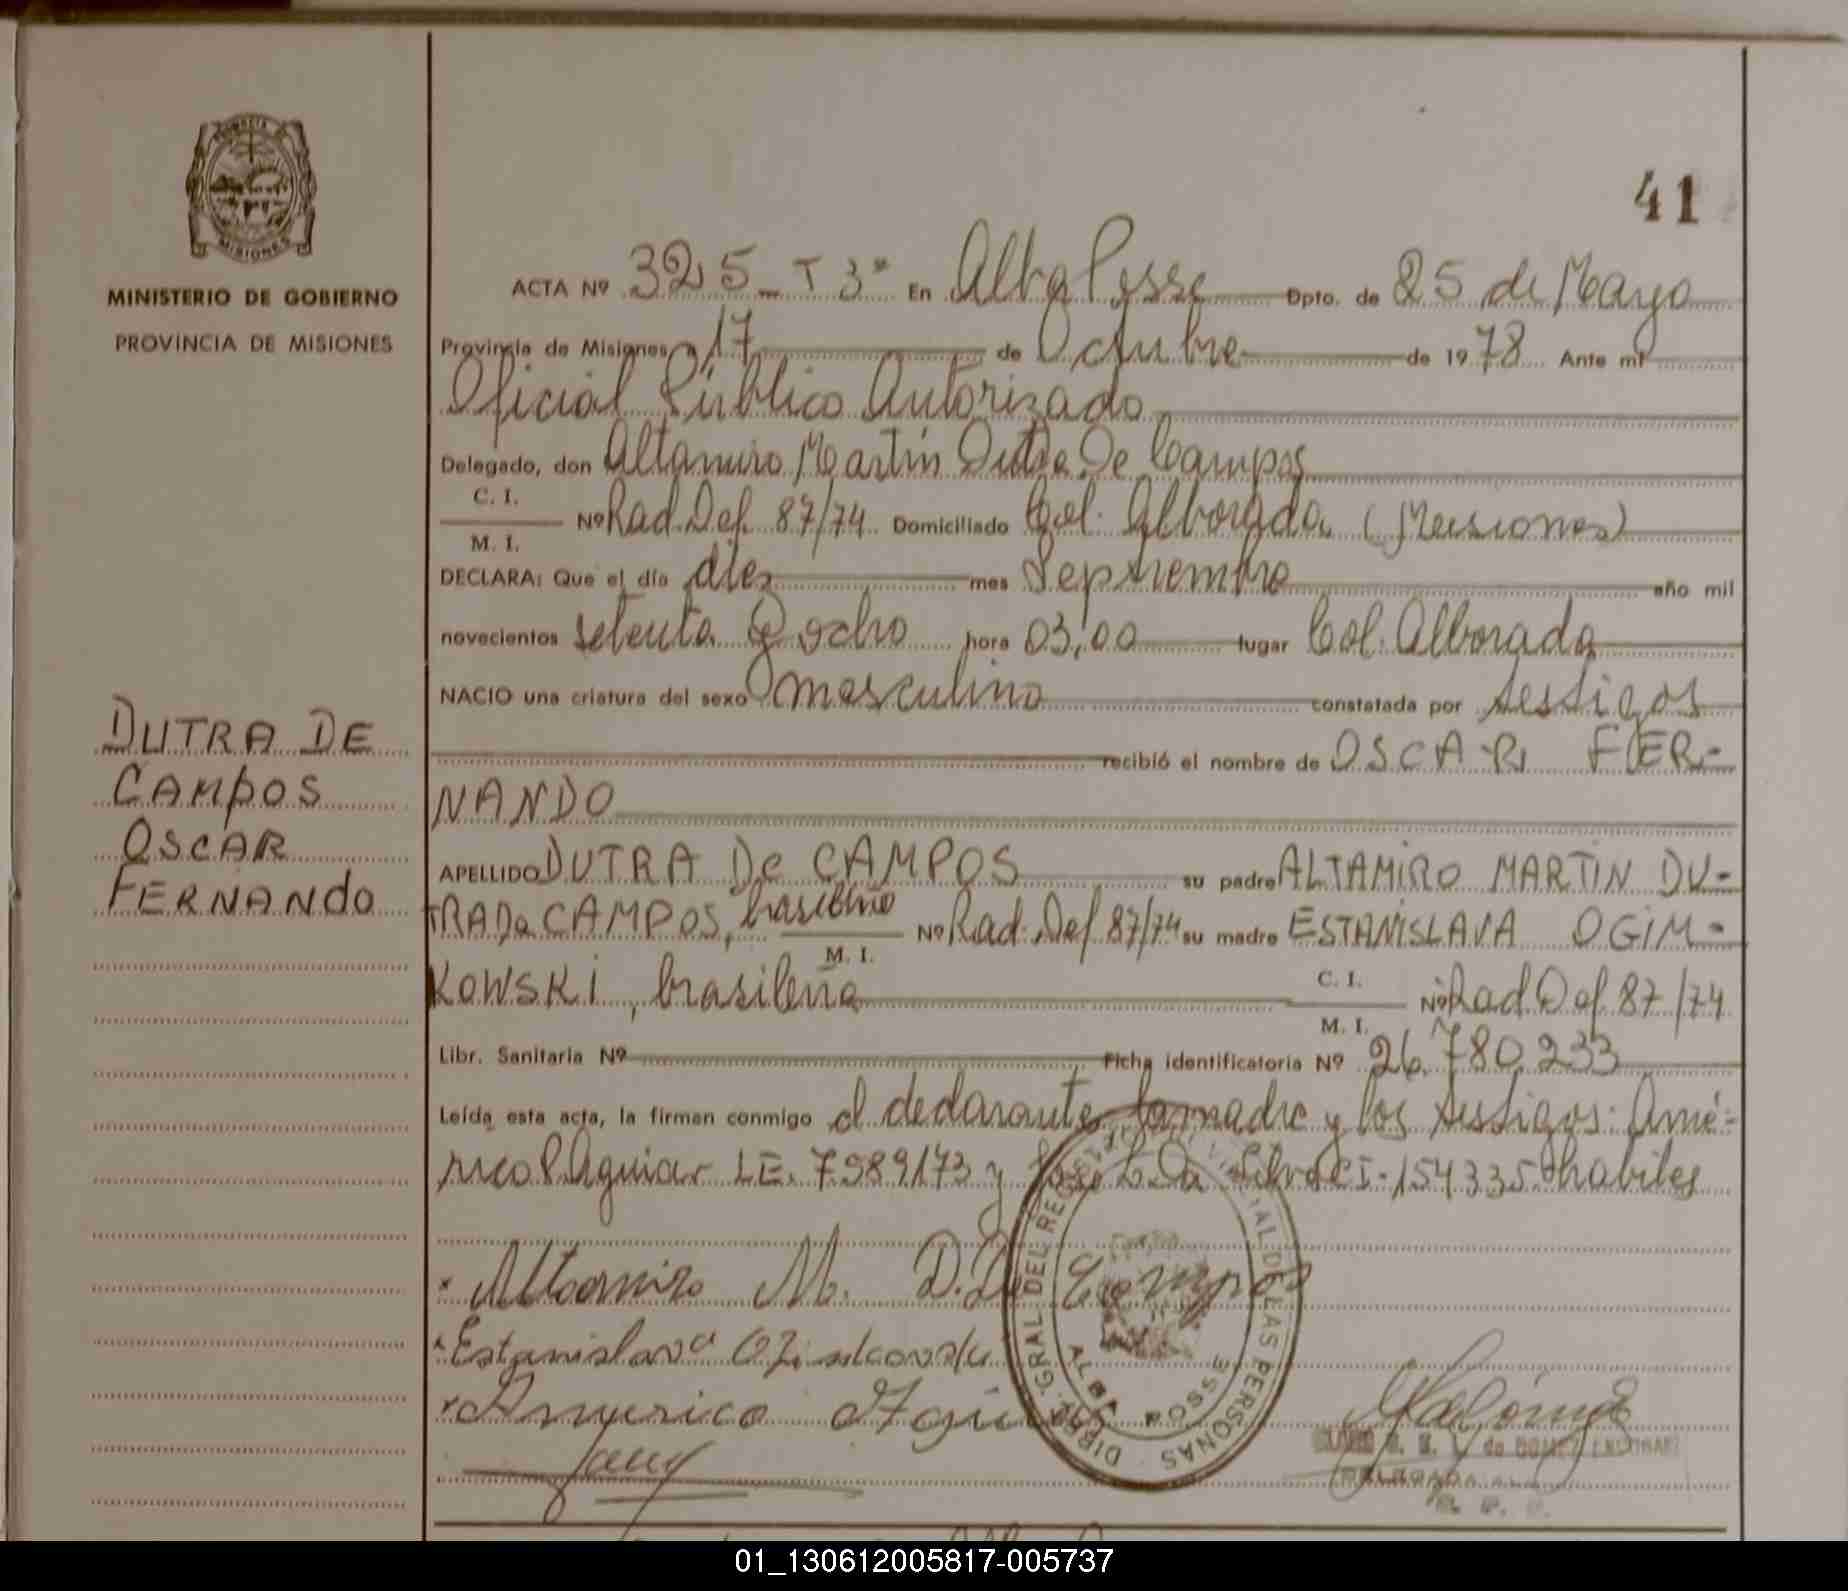 PROVINCIA DE
MISIONES
MINISTERIO DE GOBIERNO
PROVINCIA DE MISIONES
DUTRA DE
CAMPOS
OSCAR
FERNANDO
41
ACTA Nº 325_T 3ª En Alba Posse Dpto. de 25 de Mayo
Provincia de Misiones a 17 de Octubre de 1978 Ante mí
Oficial Público Autorizado
Delegado, don Altamiro Martín Dutra De Campos
C. I.
Nº Rad. Def. 87/74 Domiciliado Col. Alborada (Misiones)
M. I.
DECLARA: Que el día diez mes Septiembre año mil
novecientos setenta y ocho hora 03,00 lugar Col. Alborada
NACIO una criatura del sexo masculino constatada por testigos
recibió el nombre de OSCAR FER-
NANDO
APELLIDO DUTRA De CAMPOS su padre ALTAMIRO MARTIN DU-
TRA De CAMPOS, brasileño Nº Rad. Def 87/74 su madre ESTANISLAVA OGIM-
M. I.
KOWSKI, brasileña C. I. Nº Rad Def. 87/74
M. I.
Libr. Sanitaria Nº Ficha identificatoria Nº 26.780.233
Leída esta acta, la firman conmigo el declarante, la madre y los testigos: Amé-
rico P. Aguiar LE. 7989173 y José Da Silva CI-154335 hábiles
Altamiro M. D. De Campos
Estanislava
Americo Agui
DIREC. GRAL DEL REGISTRO PROVINCIAL DE LAS PERSONAS
ALBA POSSE
DELEGADA
01_130612005817-005737